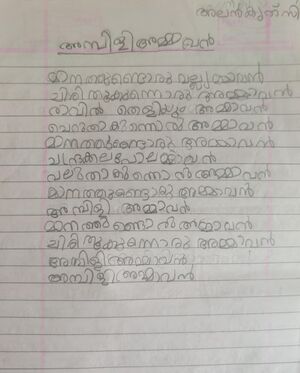 അലൻകൃത സി
അമ്പിളി അമ്മാവൻ
മാനത്തുണ്ടൊരു വല്ല്യമ്മാവൻ
ചിരിതൂകുന്നൊരു അമ്മാവൻ
രാവിൽ തെളിയും അമ്മാവൻ
ചെറുതാകുന്നൊൽ അമ്മാവൻ
മാനത്തുണ്ടൊരു അമ്മാവൻ
ചന്ദ്രക്കലപോലമ്മാവൻ
വലുതാകുന്നൊൽ അമ്മാവൻ
മാനത്തുണ്ടൊരു അമ്മാവൻ
അമ്പിളി അമ്മാവൻ
മാനത്തുണ്ടൊരു അമ്മാവൻ
ചിരിതൂകുന്നൊരു അമ്മാവൻ
അമ്പിളി അമ്മാവൻ
അമ്പിളി അമ്മാവൻ